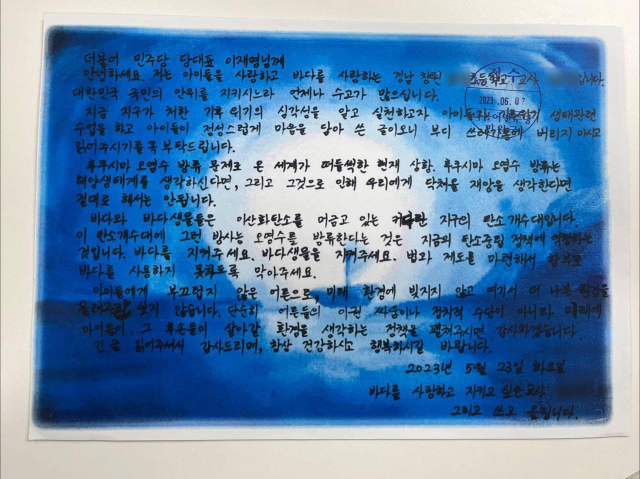 더불어 민주당 당대표 이재명님께
안녕하세요. 저는 아이들을 사랑하고 바다를 사랑하는 경남 창원 초등학교 교사 입니다.
대한민국 국민의 안위를 지키시느라 언제나 수고가 많으십니다.
지금 지구가 처한 기후 위기의 심각성을 알고 실천하고자 아이들과 생태관련
수업을 하고 아이들이 정성스럽게 마음을 담아 쓴 글이오니 부디 쓰레기통에 버리지 마시고
읽어주시기를 꼭 부탁드립니다.
후쿠시마 오염수 방류 문제로 온 세계가 떠들썩한 현재 상황. 후쿠시마 오염수 방류는
해양생태계를 생각하신다면, 그리고 그것으로 인해 우리에게 닥쳐올 재앙을 생각한다면
절대로 해서는 안됩니다.
바다와 바다생물들은 이산화탄소를 머금고 있는 커다란 지구의 탄소 개수대입니다.
이 탄소개수대에 그런 방사능 오염수를 방류한다는 것은 지금의 탄소중립 정책에 역행하는
것입니다. 바다를 지켜주세요. 바다생물을 지켜주세요. 법과 제도를 마련해서 함부로
바다를 사용하지 못하도록 막아주세요.
아이들에게 부끄럽지 않은 어른으로, 미래 환경에 빚지지 않고 여기서 더 나쁜 환경을
물려주고 싶지 않습니다. 단순히 어른들의 이권 싸움이나 정치적 수단이 아니라 미래에
아이들이, 그 후손들이 살아갈 환경을 생각하는 정책을 펼쳐주시면 감사하겠습니다.
긴 글 읽어주셔서 감사드리며, 항상 건강하시고 행복하시길 바랍니다.
2023년 5월 23일 화요일
바다를 사랑하고 지키고 싶은 교사
그리고 쓰고 올립니다.
접수
2023. 06. 07